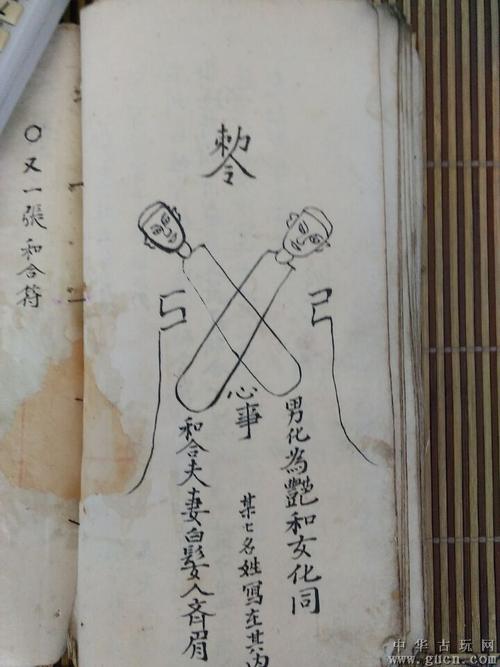 勅令
男化為艷和女化同
心事
某名姓寫在其内
和合夫妻白髮入齊眉
○又一張和合符
中華古玩网
www.gucn.com